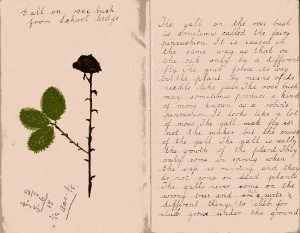 Gall on rose bush
from School hedge
The gall on the rose bush
is sometimes called the fairy
pincushion. It is caused in
the same way as that on
the oak only by a different
fly. The grub forces its way
into the plant by means of its
needle like jaws. The rose bush
may sometimes produce a kind
of moss known as a robin's
pincushion. It looks like a lot
of moss. The gall makes fly is
not the maker but the cause
of the gall. The gall is really
the growth of the plant. They
only come in spring when
the sap is running and they
do not come on dead plants.
The galls never come on the
wrong tree and quite a
different thing to club
club grows under the ground